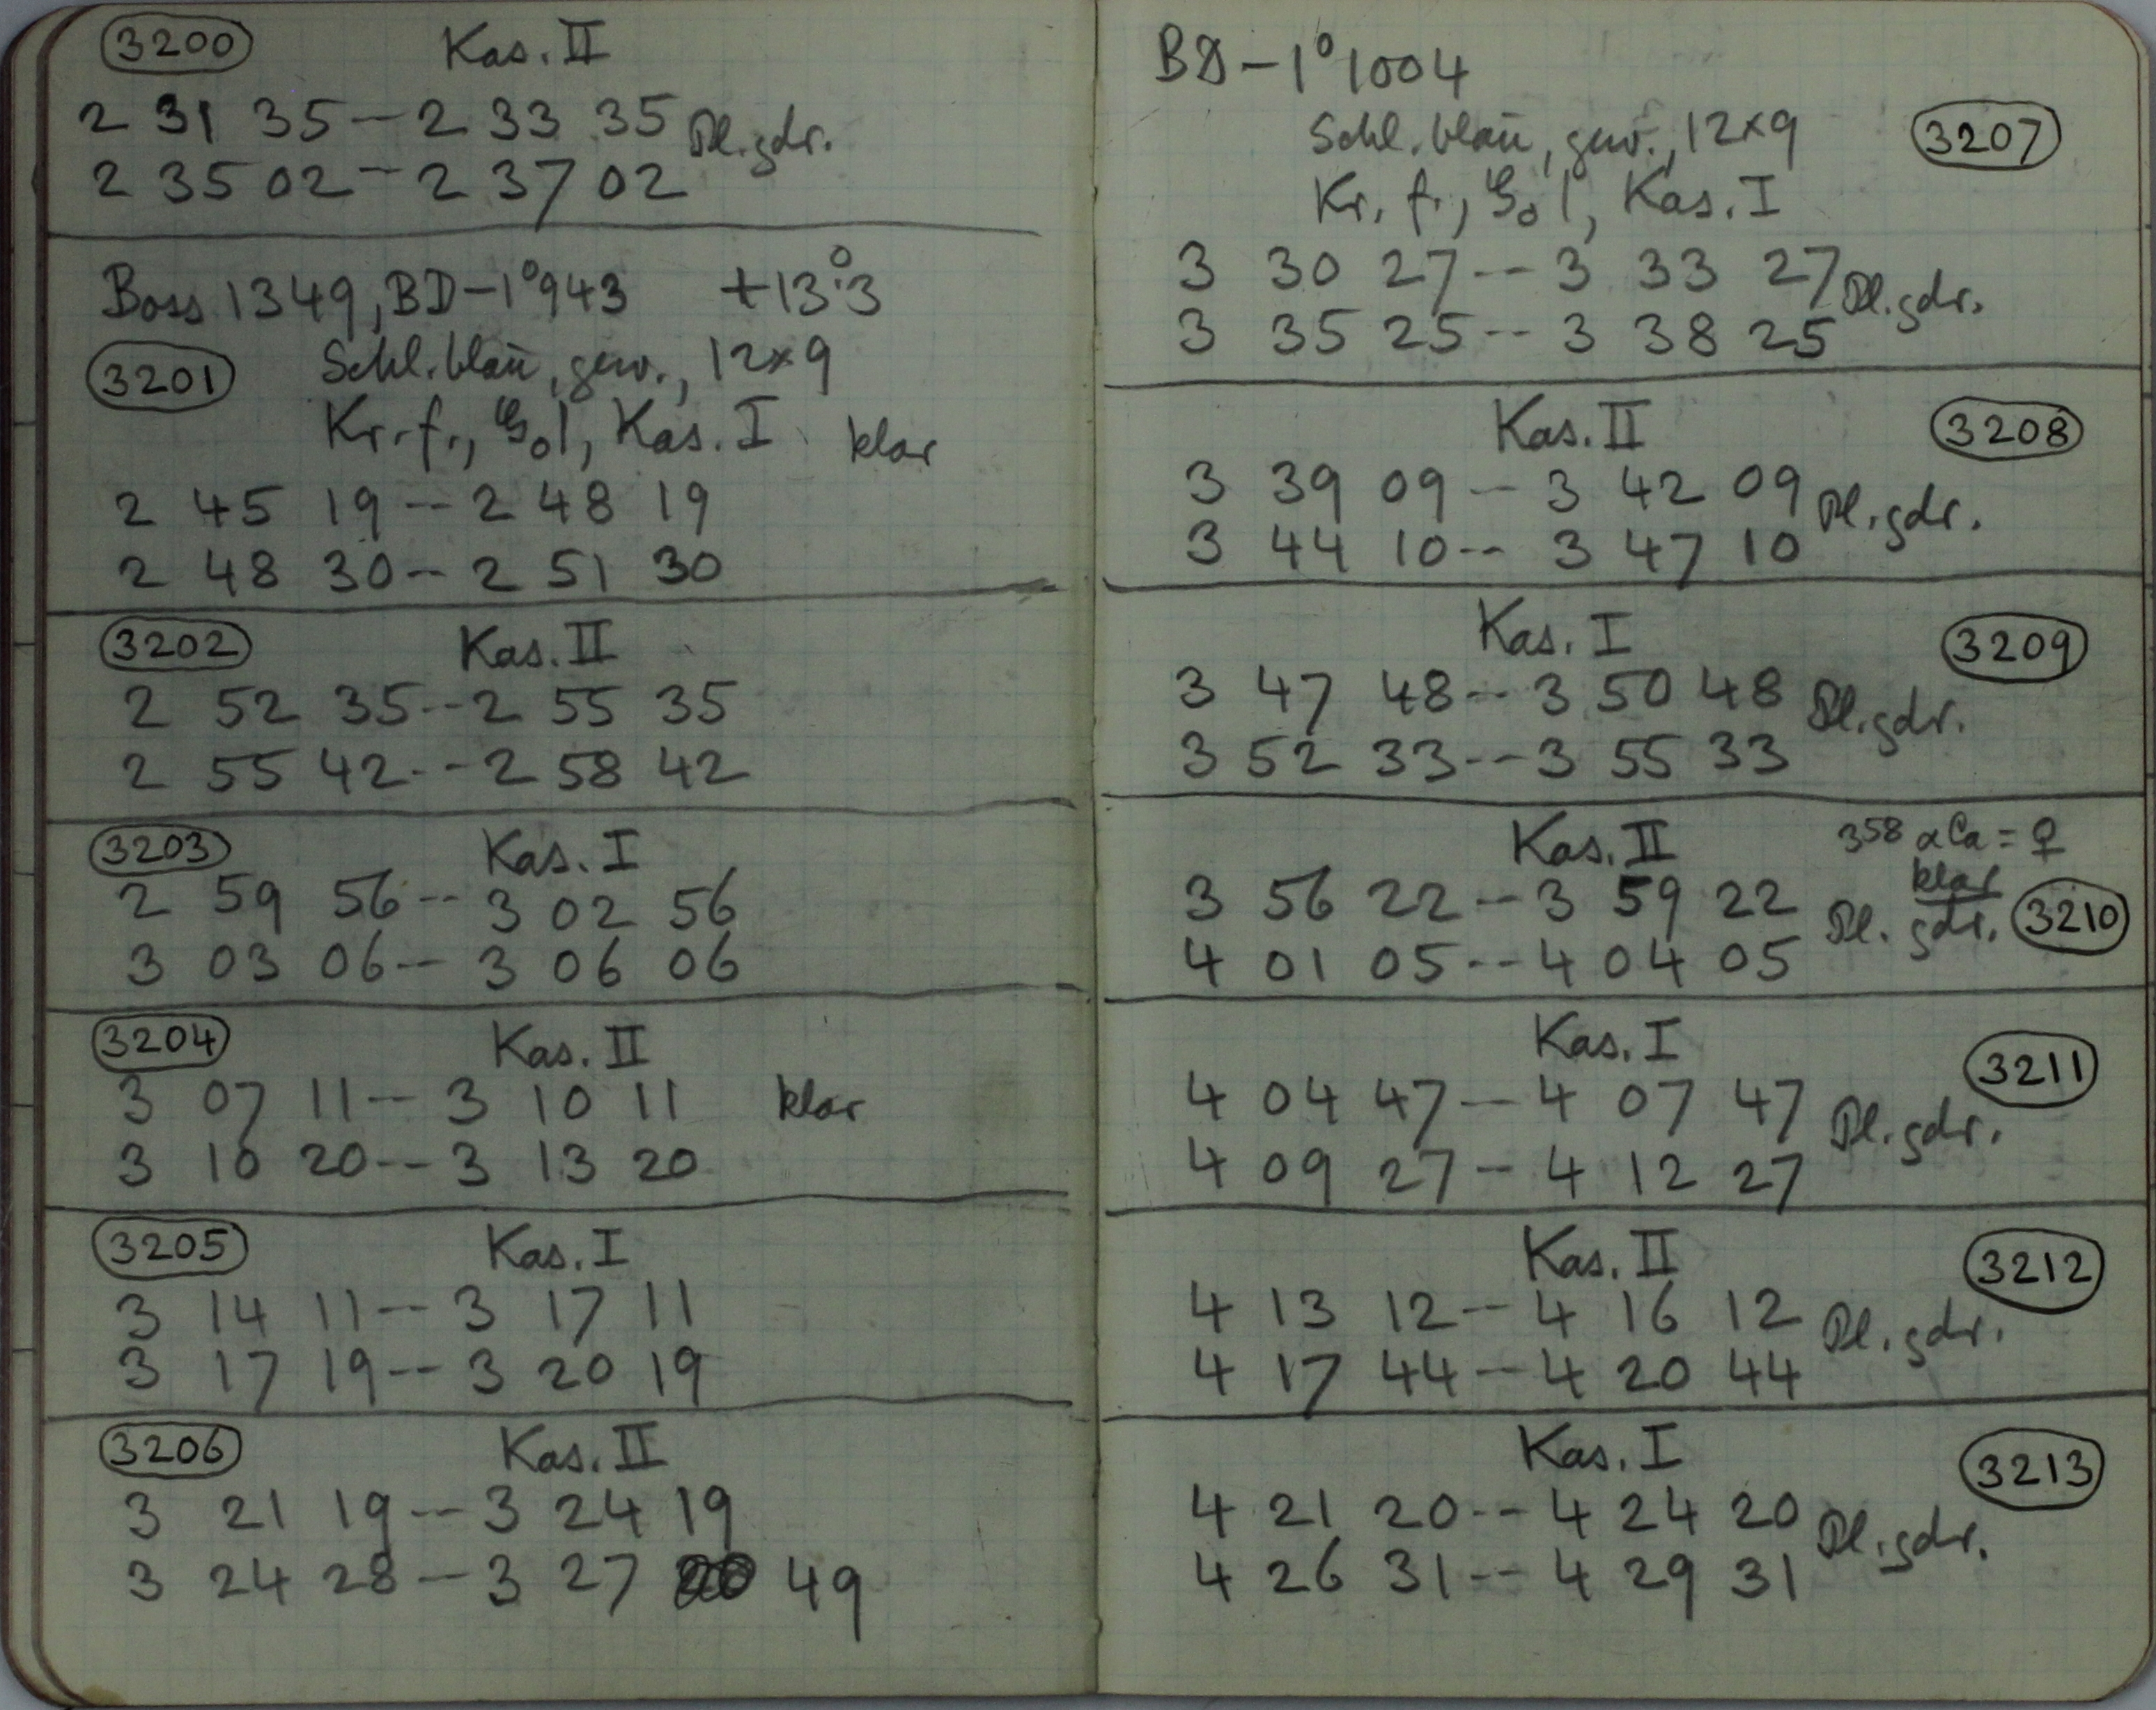 3200 Kas. II
2 31 35 -- 2 33 35 Pl. gdr.
2 35 02 -- 2 37 02
Boss 1349, BD -1° 943 +13°.3
3201 Schl. blau, gew., 12×9
Kr. f., G₀1, Kas. I klar
2 45 19 -- 2 48 19
2 48 30 -- 2 51 30
3202 Kas. II
2 52 35 -- 2 55 35
2 55 42 -- 2 58 42
3203 Kas. I
2 59 56 -- 3 02 56
3 03 06 -- 3 06 06
3204 Kas. II
3 07 11 -- 3 10 11 klar
3 10 20 -- 3 13 20
3205 Kas. I
3 14 11 -- 3 17 11
3 17 19 -- 3 20 19
3206 Kas. II
3 21 19 -- 3 24 19
3 24 28 -- 3 27 49
BD -1° 1004
Schl. blau, gew., 12×9 3207
Kr. f., G₀1, Kas. I
3 30 27 -- 3 33 27 Pl. gdr.
3 35 25 -- 3 38 25
Kas. II 3208
3 39 09 -- 3 42 09 Pl. gdr.
3 44 10 -- 3 47 10
Kas. I 3209
3 47 48 -- 3 50 48 Pl. gdr.
3 52 33 -- 3 55 33
Kas. II 358 αCa = ♀
klar
3 56 22 -- 3 59 22 Pl. gdr. 3210
4 01 05 -- 4 04 05
Kas. I 3211
4 04 47 -- 4 07 47 Pl. gdr.
4 09 27 -- 4 12 27
Kas. II 3212
4 13 12 -- 4 16 12 Pl. gdr.
4 17 44 -- 4 20 44
Kas. I 3213
4 21 20 -- 4 24 20 Pl. gdr.
4 26 31 -- 4 29 31